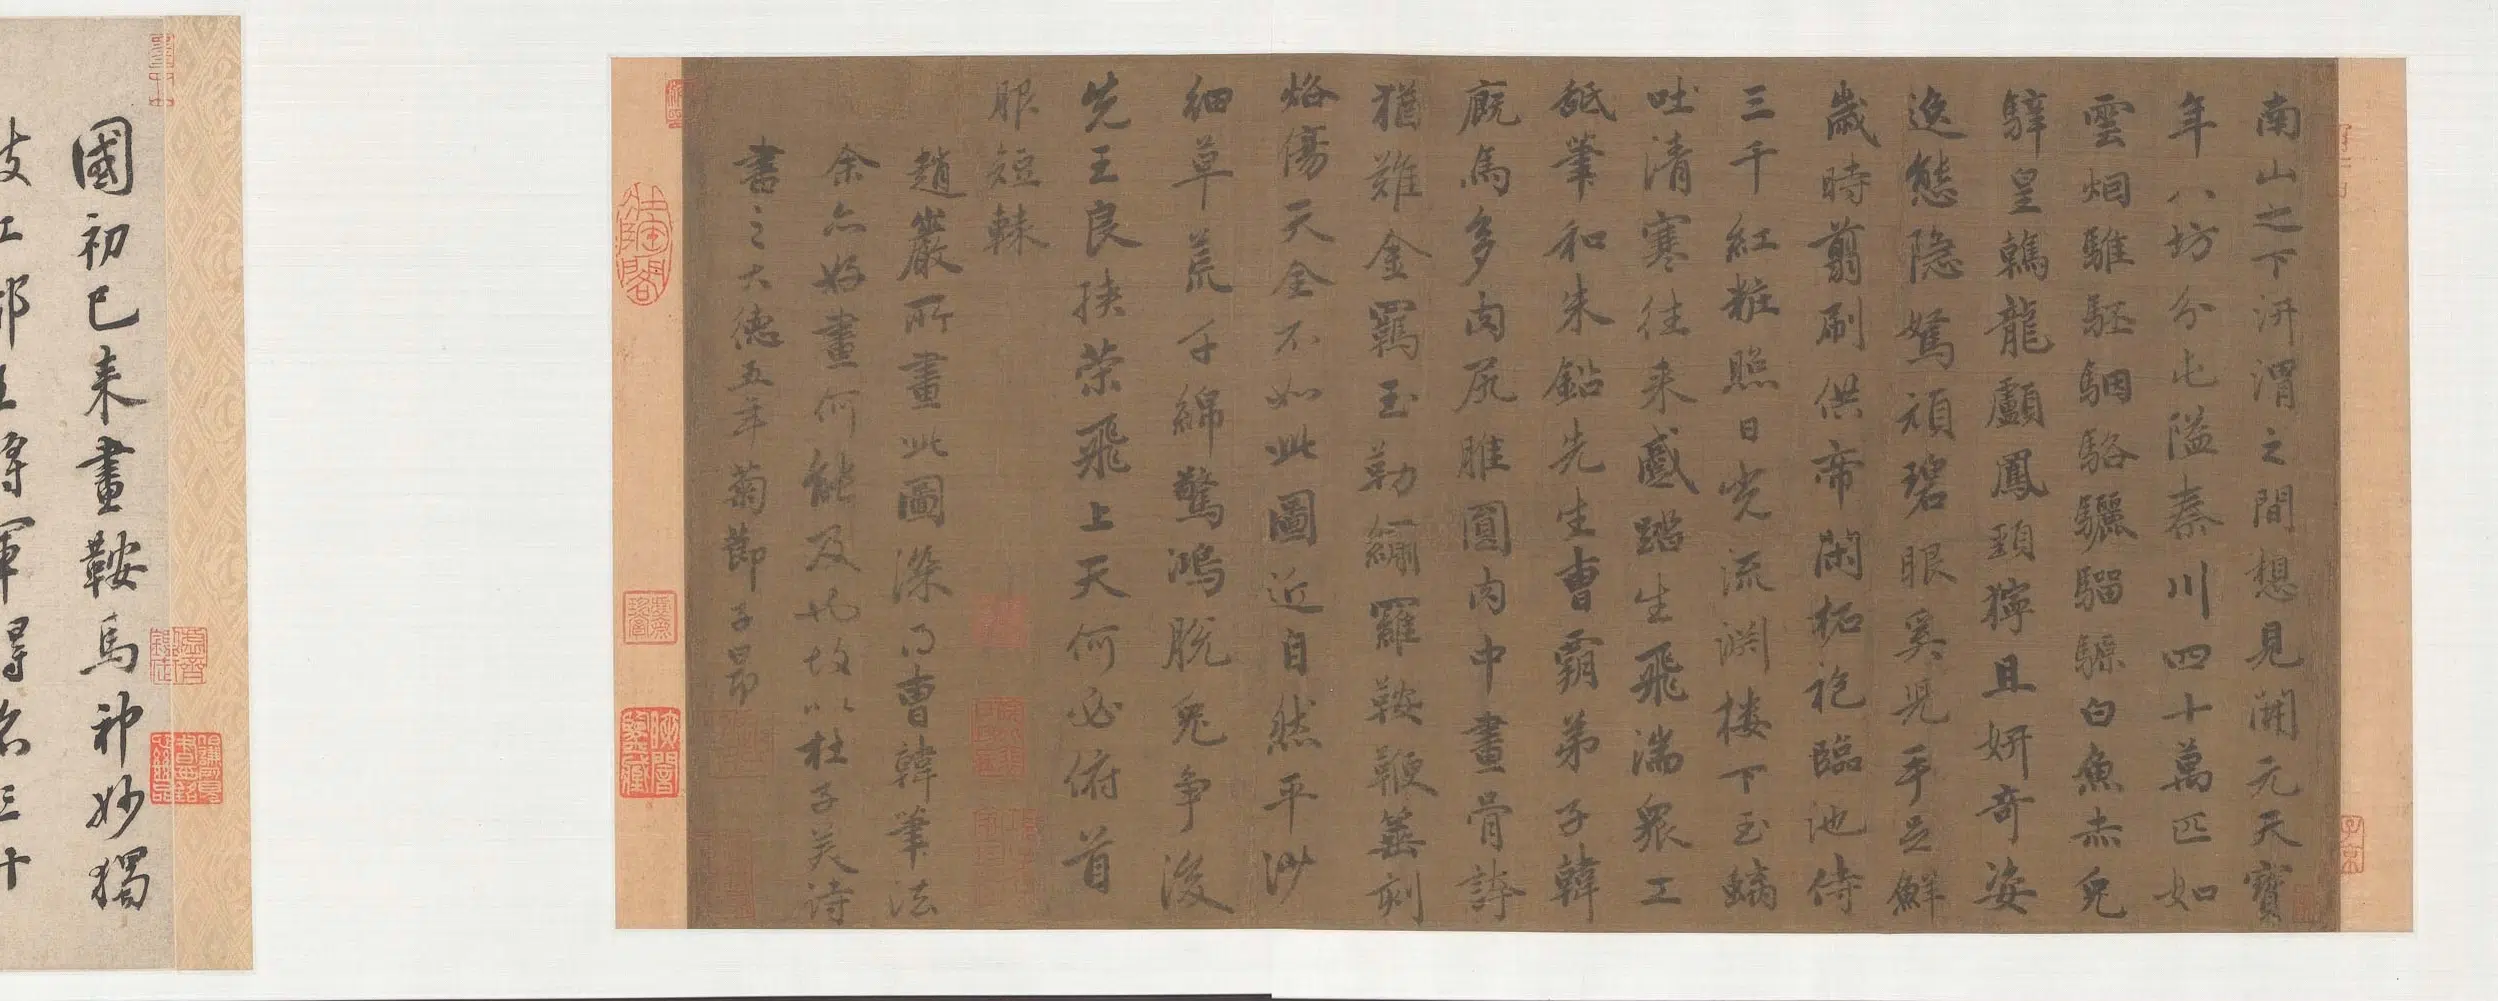 南山之下汧渭之間想見開元天寶
年八坊分屯隘秦川四十萬匹如
雲烟騅駓駰駱驪騮騵白魚赤兔
騂皇鶾龍顱鳳頸獰且妍奇姿
逸態隱駑頑碧眼奚兒手足鮮
歲時翦刷供帝閑柘袍臨池侍
三千紅粧照日光流淵樓下玉螭
吐清寒往来蹙踏生飛湍眾工
舐筆和朱鉛先生曹霸弟子韓
廐馬多肉尻脽圓肉中畫骨誇
猶難金羈玉勒繡羅鞍鞭箠刻
烙傷天全不如此圖近自然平沙
細草荒芊綿驚鴻脫兔争後
先王良挾策飛上天何必俯首
服短轅
趙巖所畫此圖深得曹韓筆法
余亦好畫何能及也故以杜子美詩
書之大德五年菊節子昂
國初已来畫鞍馬神妙獨
支江都王將軍得名三十